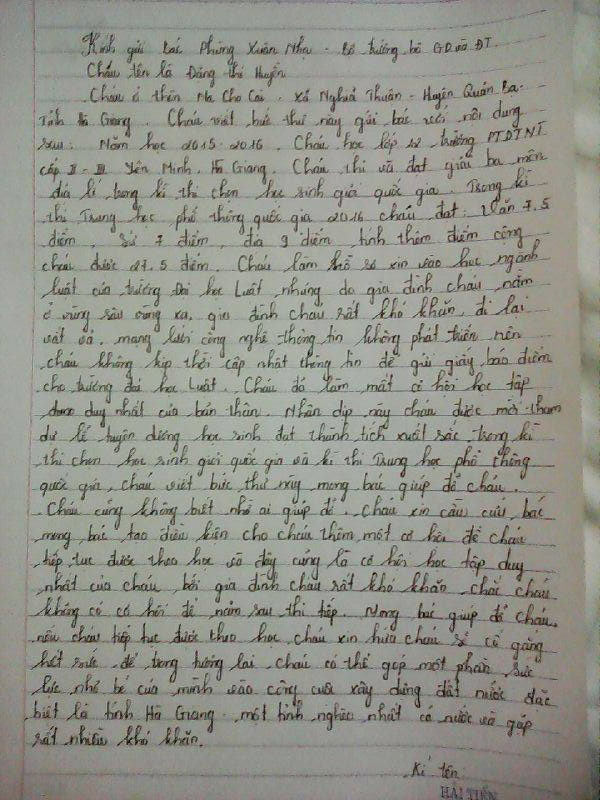 Kính gửi bác Phùng Xuân Nhạ - Bộ trưởng bộ GD và ĐT.
Cháu tên là Đặng Thị Huyền
Cháu ở thôn Na Cho Cai - Xã Nghĩa Thuận - Huyện Quản Bạ -
Tỉnh Hà Giang. Cháu viết bức thư này gửi bác với nội dung
sau: Năm học 2015-2016. Cháu học lớp 12 trường PTDTNT
cấp II - III Yên Minh, Hà Giang. Cháu thi và đạt giải ba môn
địa lí trong kì thi chọn học sinh giỏi quốc gia. Trong kì
thi Trung học phổ thông quốc gia 2016 cháu đạt: Văn 7,5
điểm, sử 7 điểm, địa 9 điểm, tính thêm điểm cộng
cháu được 27,5 điểm. Cháu làm hồ sơ xin vào học ngành
luật của trường Đại học Luật, nhưng do gia đình cháu nằm
ở vùng sâu vùng xa, gia đình cháu rất khó khăn, đi lại
vất vả, mạng lưới công nghệ thông tin không phát triển nên
cháu không kịp thời cập nhật thông tin để gửi giấy báo điểm
cho trường đại học Luật. Cháu đã làm mất cơ hội học tập
được duy nhất của bản thân. Nhân dịp này cháu được mời tham
dự lễ tuyên dương học sinh đạt thành tích xuất sắc trong kì
thi chọn học sinh giỏi quốc gia và kì thi Trung học phổ thông
quốc gia, cháu viết bức thư này mong bác giúp đỡ cháu.
Cháu cũng không biết nhờ ai giúp đỡ. Cháu xin cầu cứu bác
mong bác tạo điều kiện cho cháu thêm một cơ hội để cháu
tiếp tục được theo học và đây cũng là cơ hội học tập duy
nhất của cháu, bởi gia đình cháu rất khó khăn, chắc cháu
không có cơ hội để năm sau thi tiếp. Mong bác giúp đỡ cháu,
nếu cháu tiếp tục được theo học cháu xin hứa cháu sẽ cố gắng
hết sức để trong tương lai cháu có thể góp một phần sức
lực nhỏ bé của mình vào công cuộc xây dựng đất nước đặc
biệt là tỉnh Hà Giang - một tỉnh nghèo nhất cả nước và gặp
rất nhiều khó khăn.
Kí tên
HẢI TIẾN